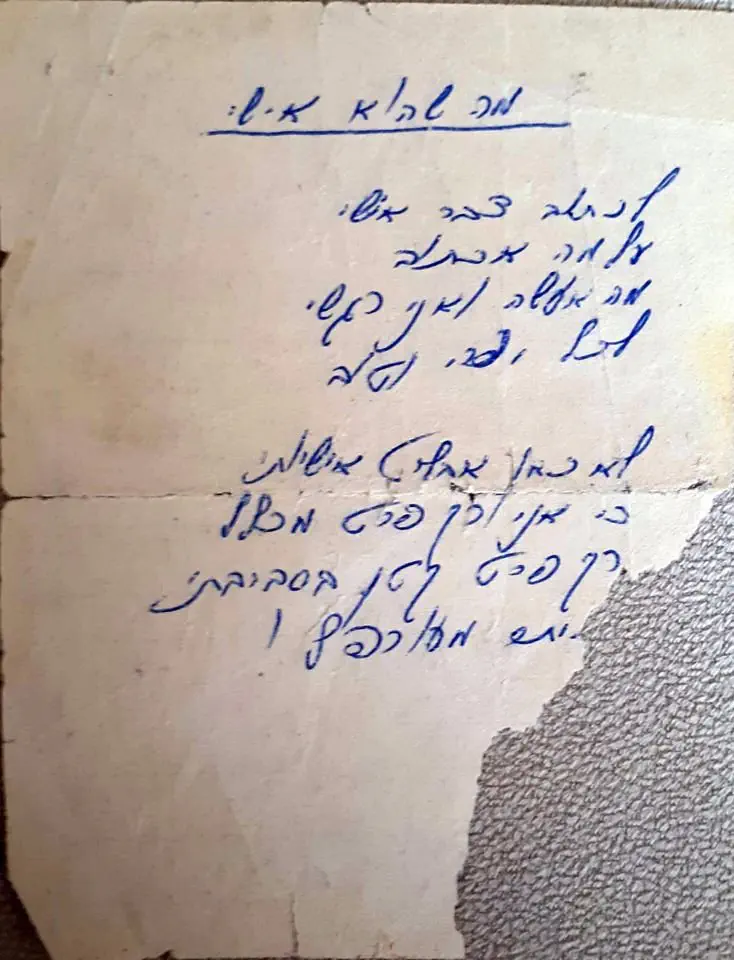 מה שהוא אישי
לכתוב דבר אישי
על מה אכתוב
מה אעשה ואני רגשי
לכל יפה וטוב
לא כאן אחליט אישיותי
כי אני רק פרט מכלל
רק פרט קטן בסביבתי
מעורפל